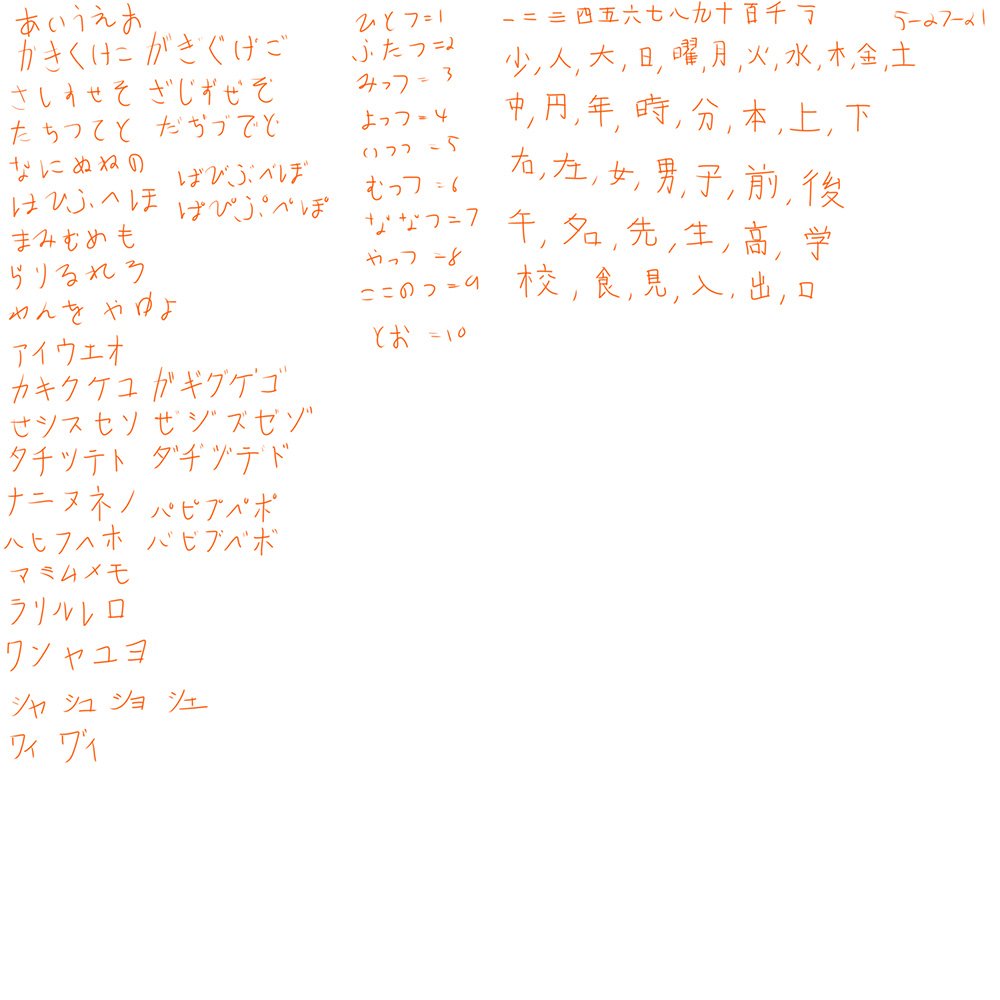 あいうえお
かきくけこ がぎぐげご
さしすせそ ざじずぜぞ
たちつてと だぢづでど
なにぬねの
はひふへほ ばびぶべぼ
ぱぴぷぺぽ
まみむめも
らりるれろ
わんを やゆよ
アイウエオ
カキクケコ ガギグゲゴ
せシスセソ ぜジズゼゾ
タチツテト ダヂヅデド
ナニヌネノ
パピプペポ
ハヒフヘホ バビブベボ
マミムメモ
ラリルレロ
ワン ヤユヨ
シャ シュ ショ シェ
ワィ ヴィ
ひとつ=1
ふたつ=2
みっつ=3
よっつ=4
いつつ=5
むっつ=6
ななつ=7
やっつ=8
ここのつ=9
とお=10
一二三四五六七八九十百千万
5-27-21
少,人,大,日,曜,月,火,水,木,金,土
中,円,年,時,分,本,上,下
右,左,女,男,子,前,後
午,名,先,生,高,学
校,食,見,入,出,口